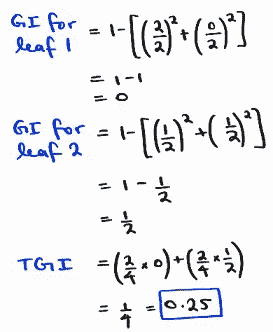 GI for leaf 1 = 1-[(2/2)² + (0/2)²]
= 1-1
= 0
GI for leaf 2 = 1-[(1/2)² + (1/2)²]
= 1 - 1/2
= 1/2
TGI = (2/4 × 0) + (2/4 × 1/2)
= 1/4 = 0.25